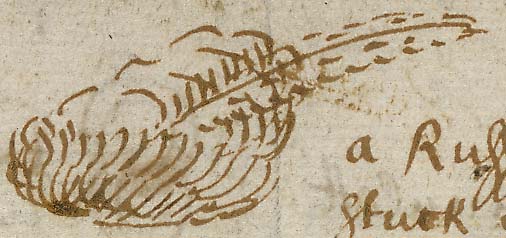 a Rush
stuck